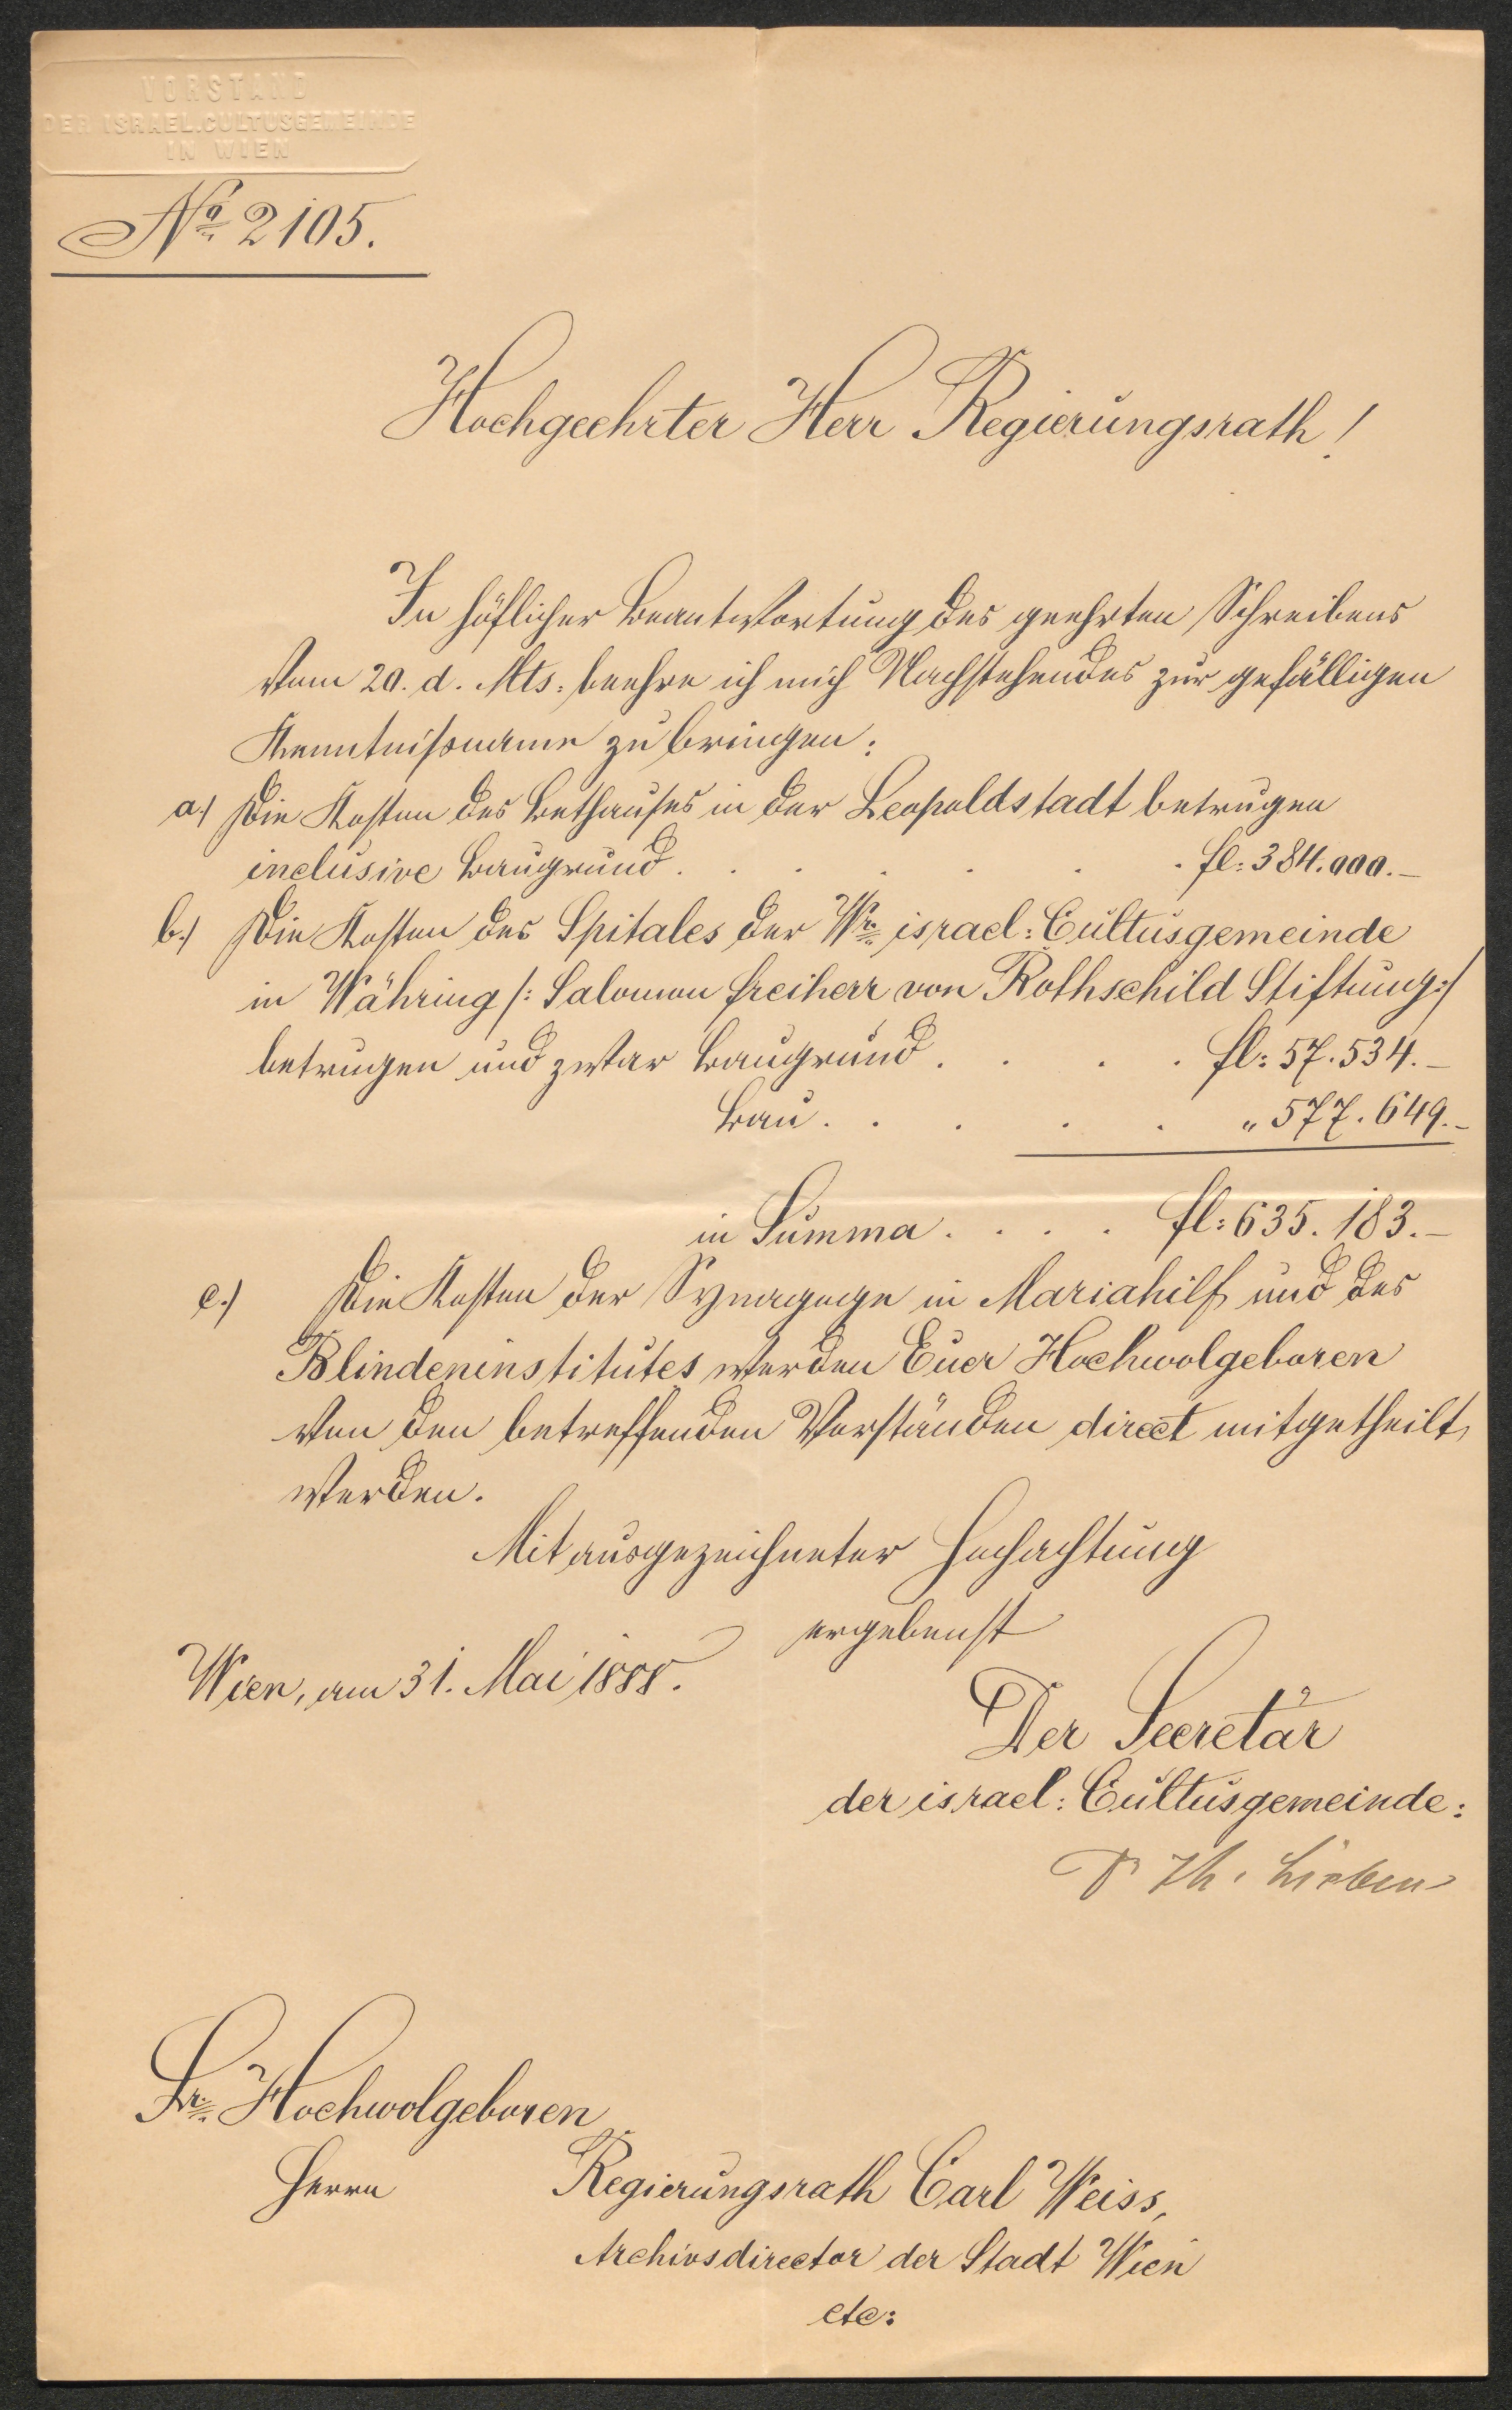 VORSTAND
DER ISRAEL. CULTUSGEMEINDE
IN WIEN
No. 2105.
Hochgeehrter Herr Regierungsrath!
In höflicher Beantwortung des geehrten Schreibens
vom 20. d. Mts: beehre ich mich Nachstehendes zur gefälligen
Kenntnißname zu bringen:
a.) Die Kosten des Bethauses in der Leopoldstadt betrugen
inclusive Baugrund . . . . . . fl: 384.000.–
b.) Die Kosten des Spitales der Wr. israel: Cultusgemeinde
in Währing /: Salomon Freiherr von Rothschild Stiftung :/
betrugen und zwar Baugrund . . . . fl: 57.534.–
Bau . . . . . " 577.649.–
in Summa . . . . fl: 635.183.–
c.) Die Kosten der Synagoge in Mariahilf und des
Blindeninstitutes werden Euer Hochwolgeboren
von den betreffenden Vorständen direct mitgetheilt
werden.
Mit ausgezeichneter Hochachtung
ergebenst
Wien, am 31. Mai 1888.
Der Secretär
der israel: Cultusgemeinde:
Dr Th. Lieben
Sr. Hochwolgeboren
Herrn Regierungsrath Carl Weiss,
Archivsdirector der Stadt Wien
etc: